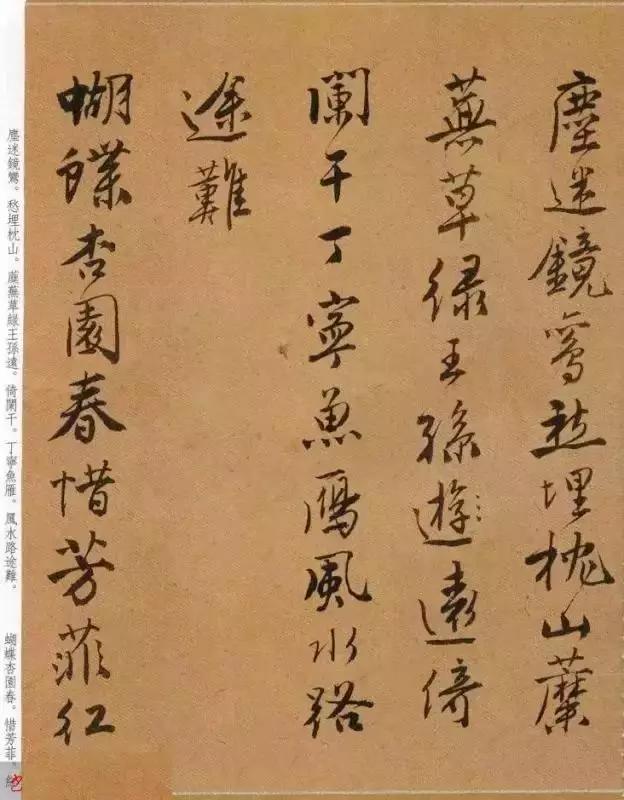 塵迷鏡鸞愁埋枕山蘼
蕪草緑王孫遊遠倚
闌干丁寧魚鴈風水路
途難
蝴蝶杏園春惜芳菲紅
塵迷鏡鸞。愁埋枕山。蘼蕪草綠王孫遠。倚闌干。丁寧魚雁。風水路途難。 蝴蝶杏園春。惜芳菲。